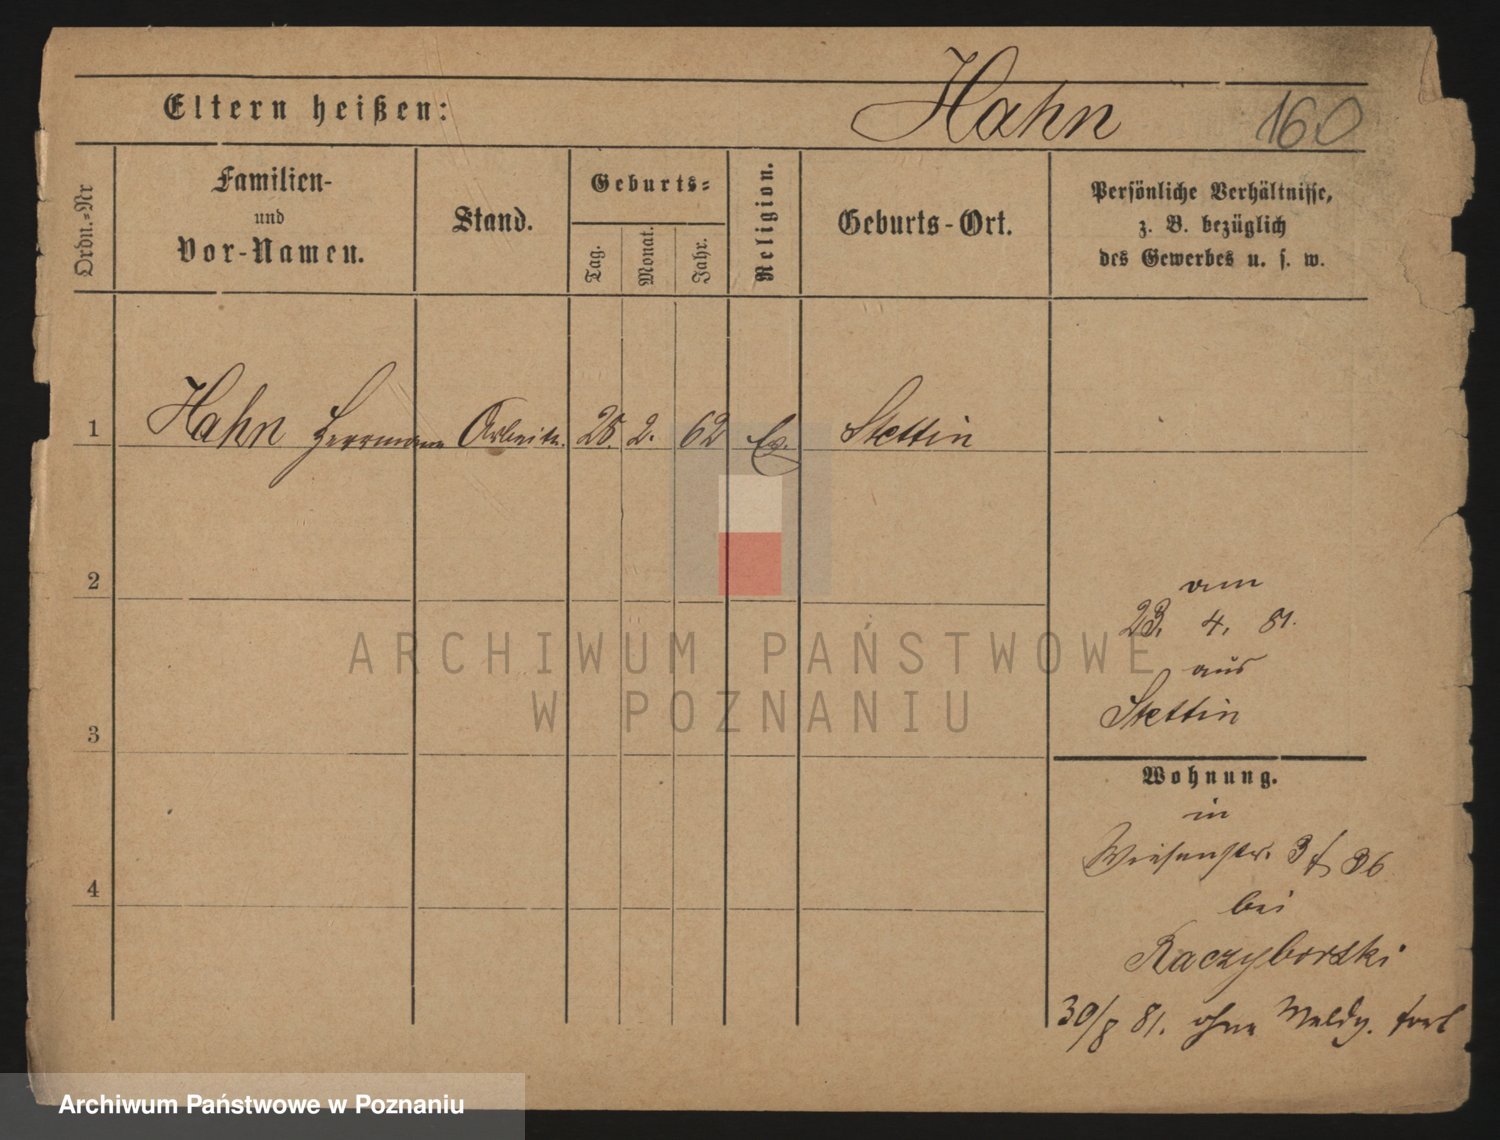 Eltern heißen:
Hahn
160
Ordn.=Nr
Familien-
und
Vor-Namen.
Stand.
Geburts=
Tag.
Monat.
Jahr.
Religion.
Geburts-Ort.
Persönliche Verhältnisse,
z. B. bezüglich
des Gewerbes u. s. w.
1 Hahn Herrmann Arbeitr. 25. 2. 62 Ev. Stettin
2
am
23. 4. 81.
aus
Stettin
3
Wohnung.
in
Wiesenstr. 36
bei
Raczyborski
4
30/8 81. ohne Meldg. fort
ARCHIWUM PAŃSTWOWE
W POZNANIU
Archiwum Państwowe w Poznaniu